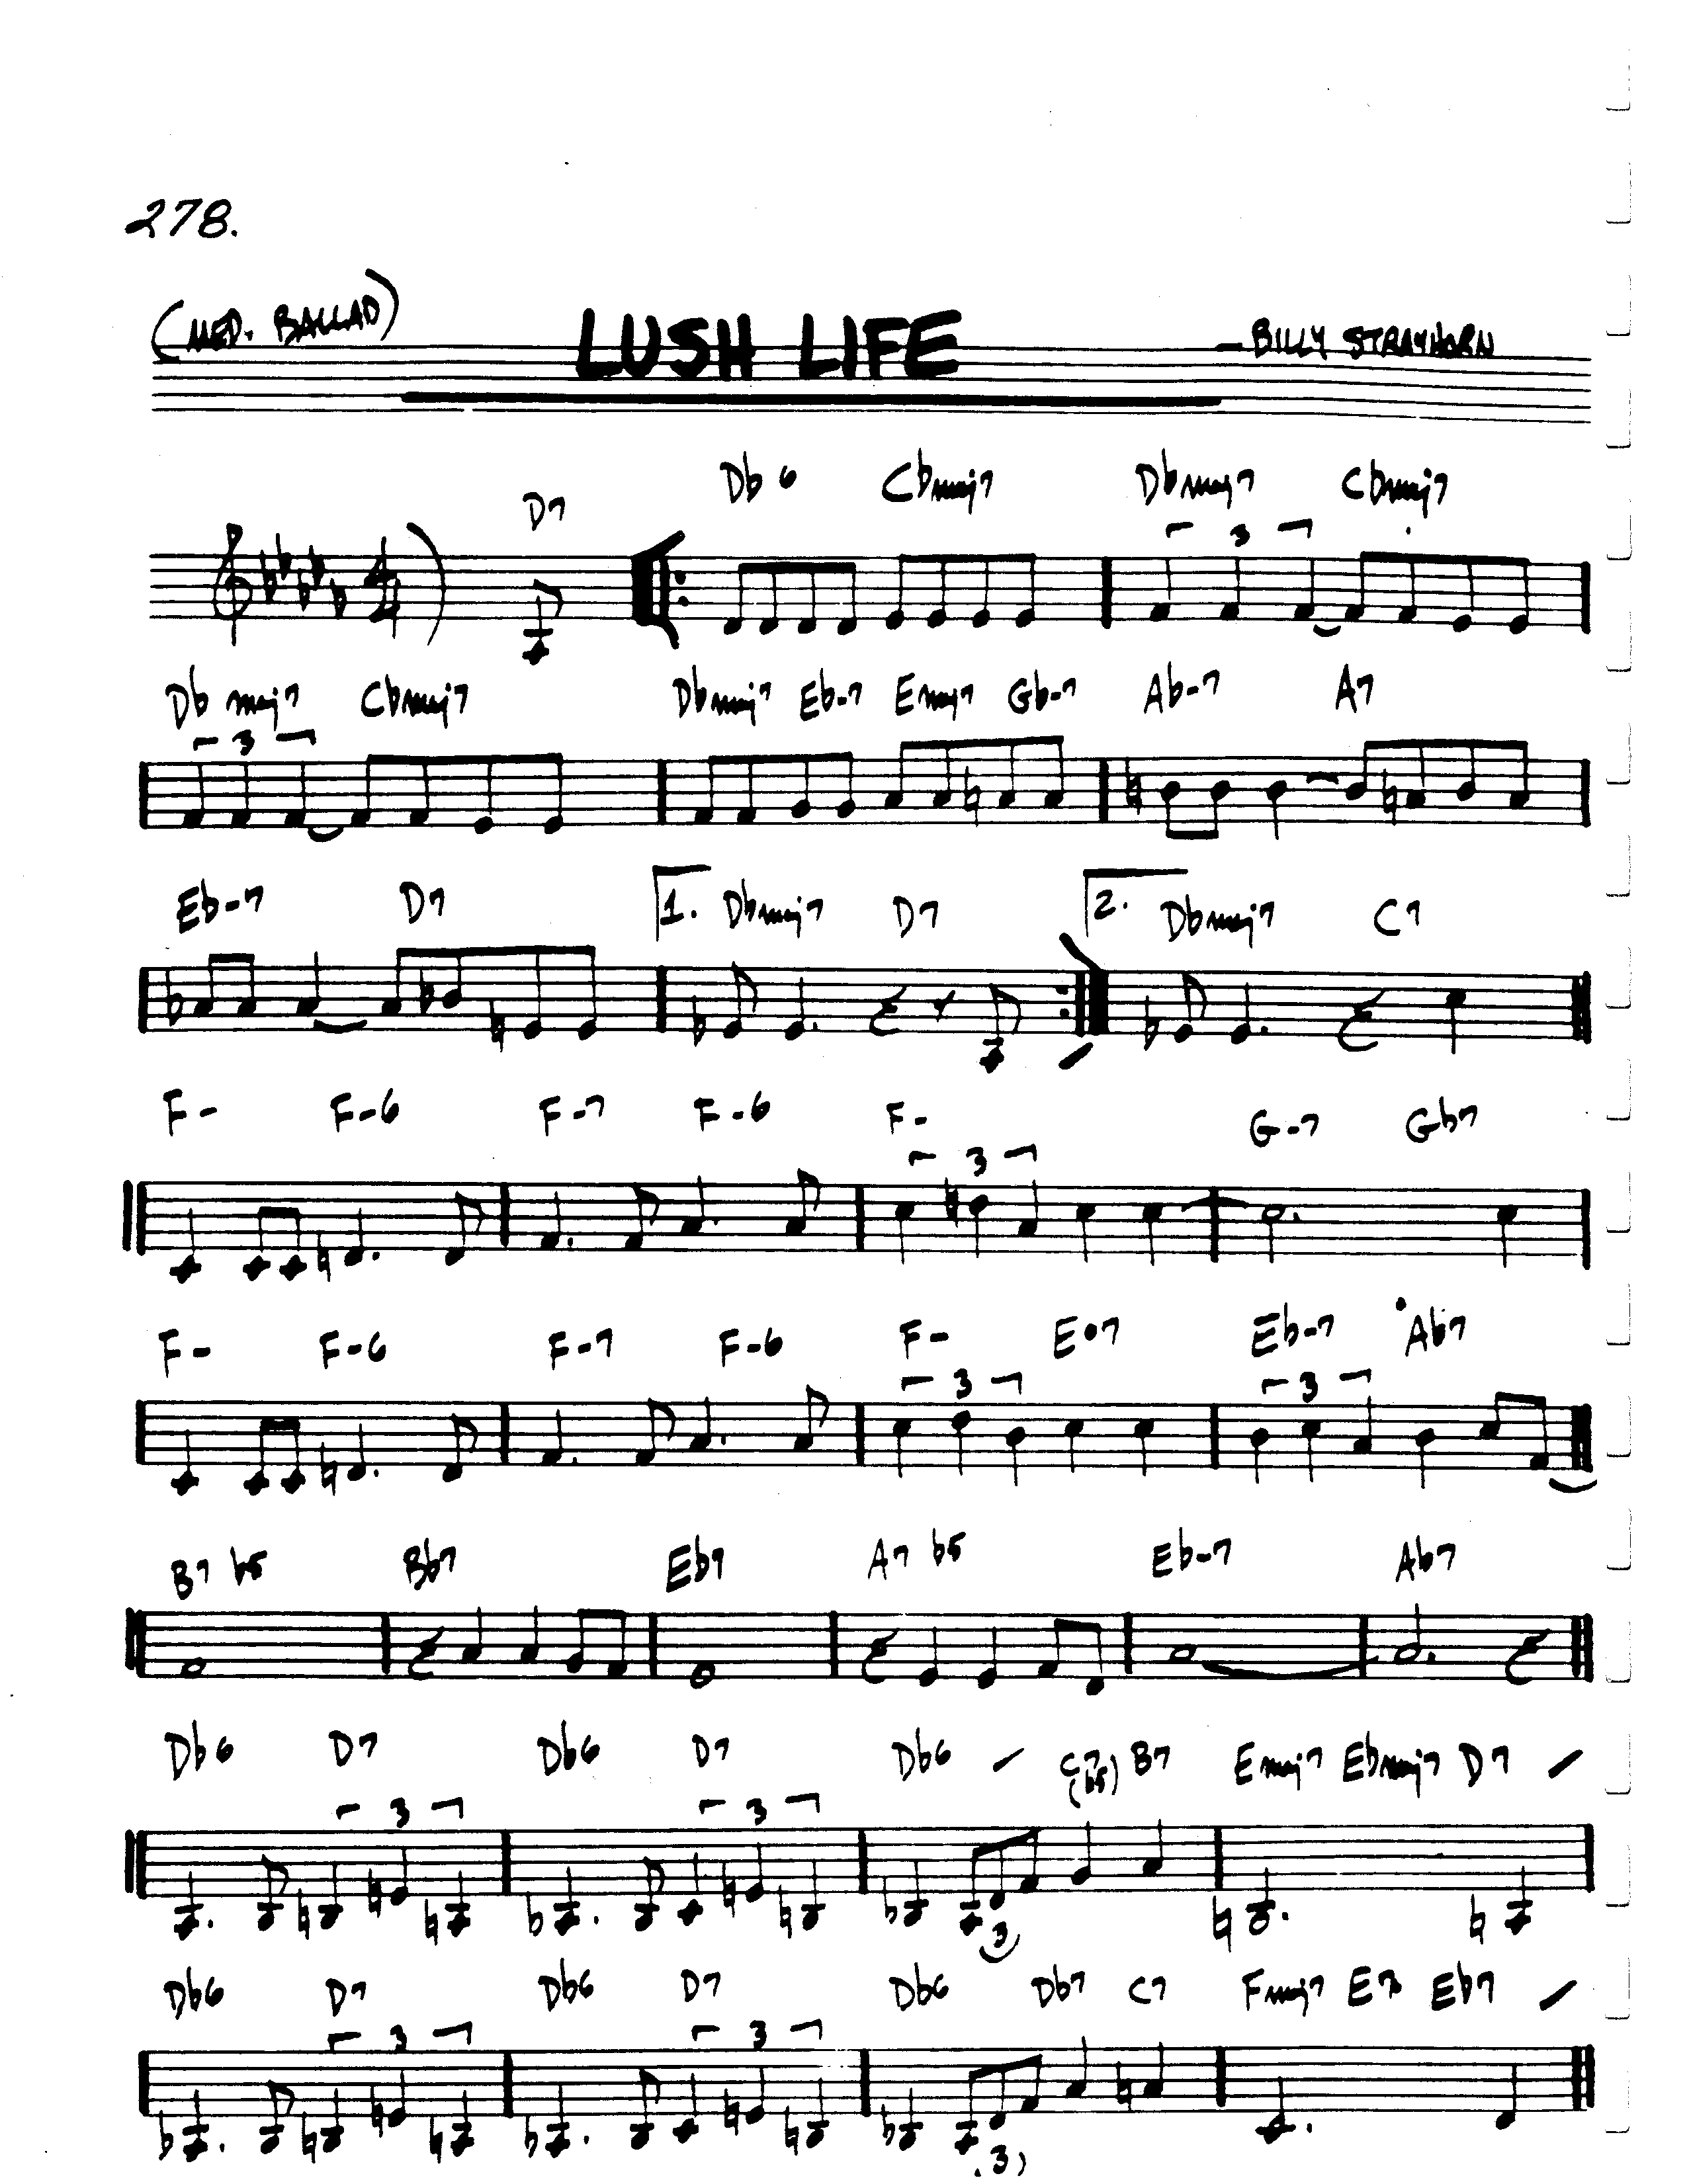 278.
(MED. BALLAD) LUSH LIFE — BILLY STRAYHORN
D7 Db6 Cbmaj7 Dbmaj7 Cbmaj7
3
Db maj7 Cbmaj7 Dbmaj7 Eb-7 Emaj7 Gb-7 Ab-7 A7
3
Eb-7 D7 1. Dbmaj7 D7 2. Dbmaj7 C7
F- F-6 F-7 F-6 F- G-7 Gb7
3
F- F-6 F-7 F-6 F- E°7 Eb-7 Ab7
3 3
B7 b5 Bb7 Eb7 A7 b5 Eb-7 Ab7
Db6 D7 Db6 D7 Db6 C7 (b5) B7 Emaj7 Ebmaj7 D7
3 3
3
Db6 D7 Db6 D7 Db6 Db7 C7 Fmaj7 E7 Eb7
3 3
3